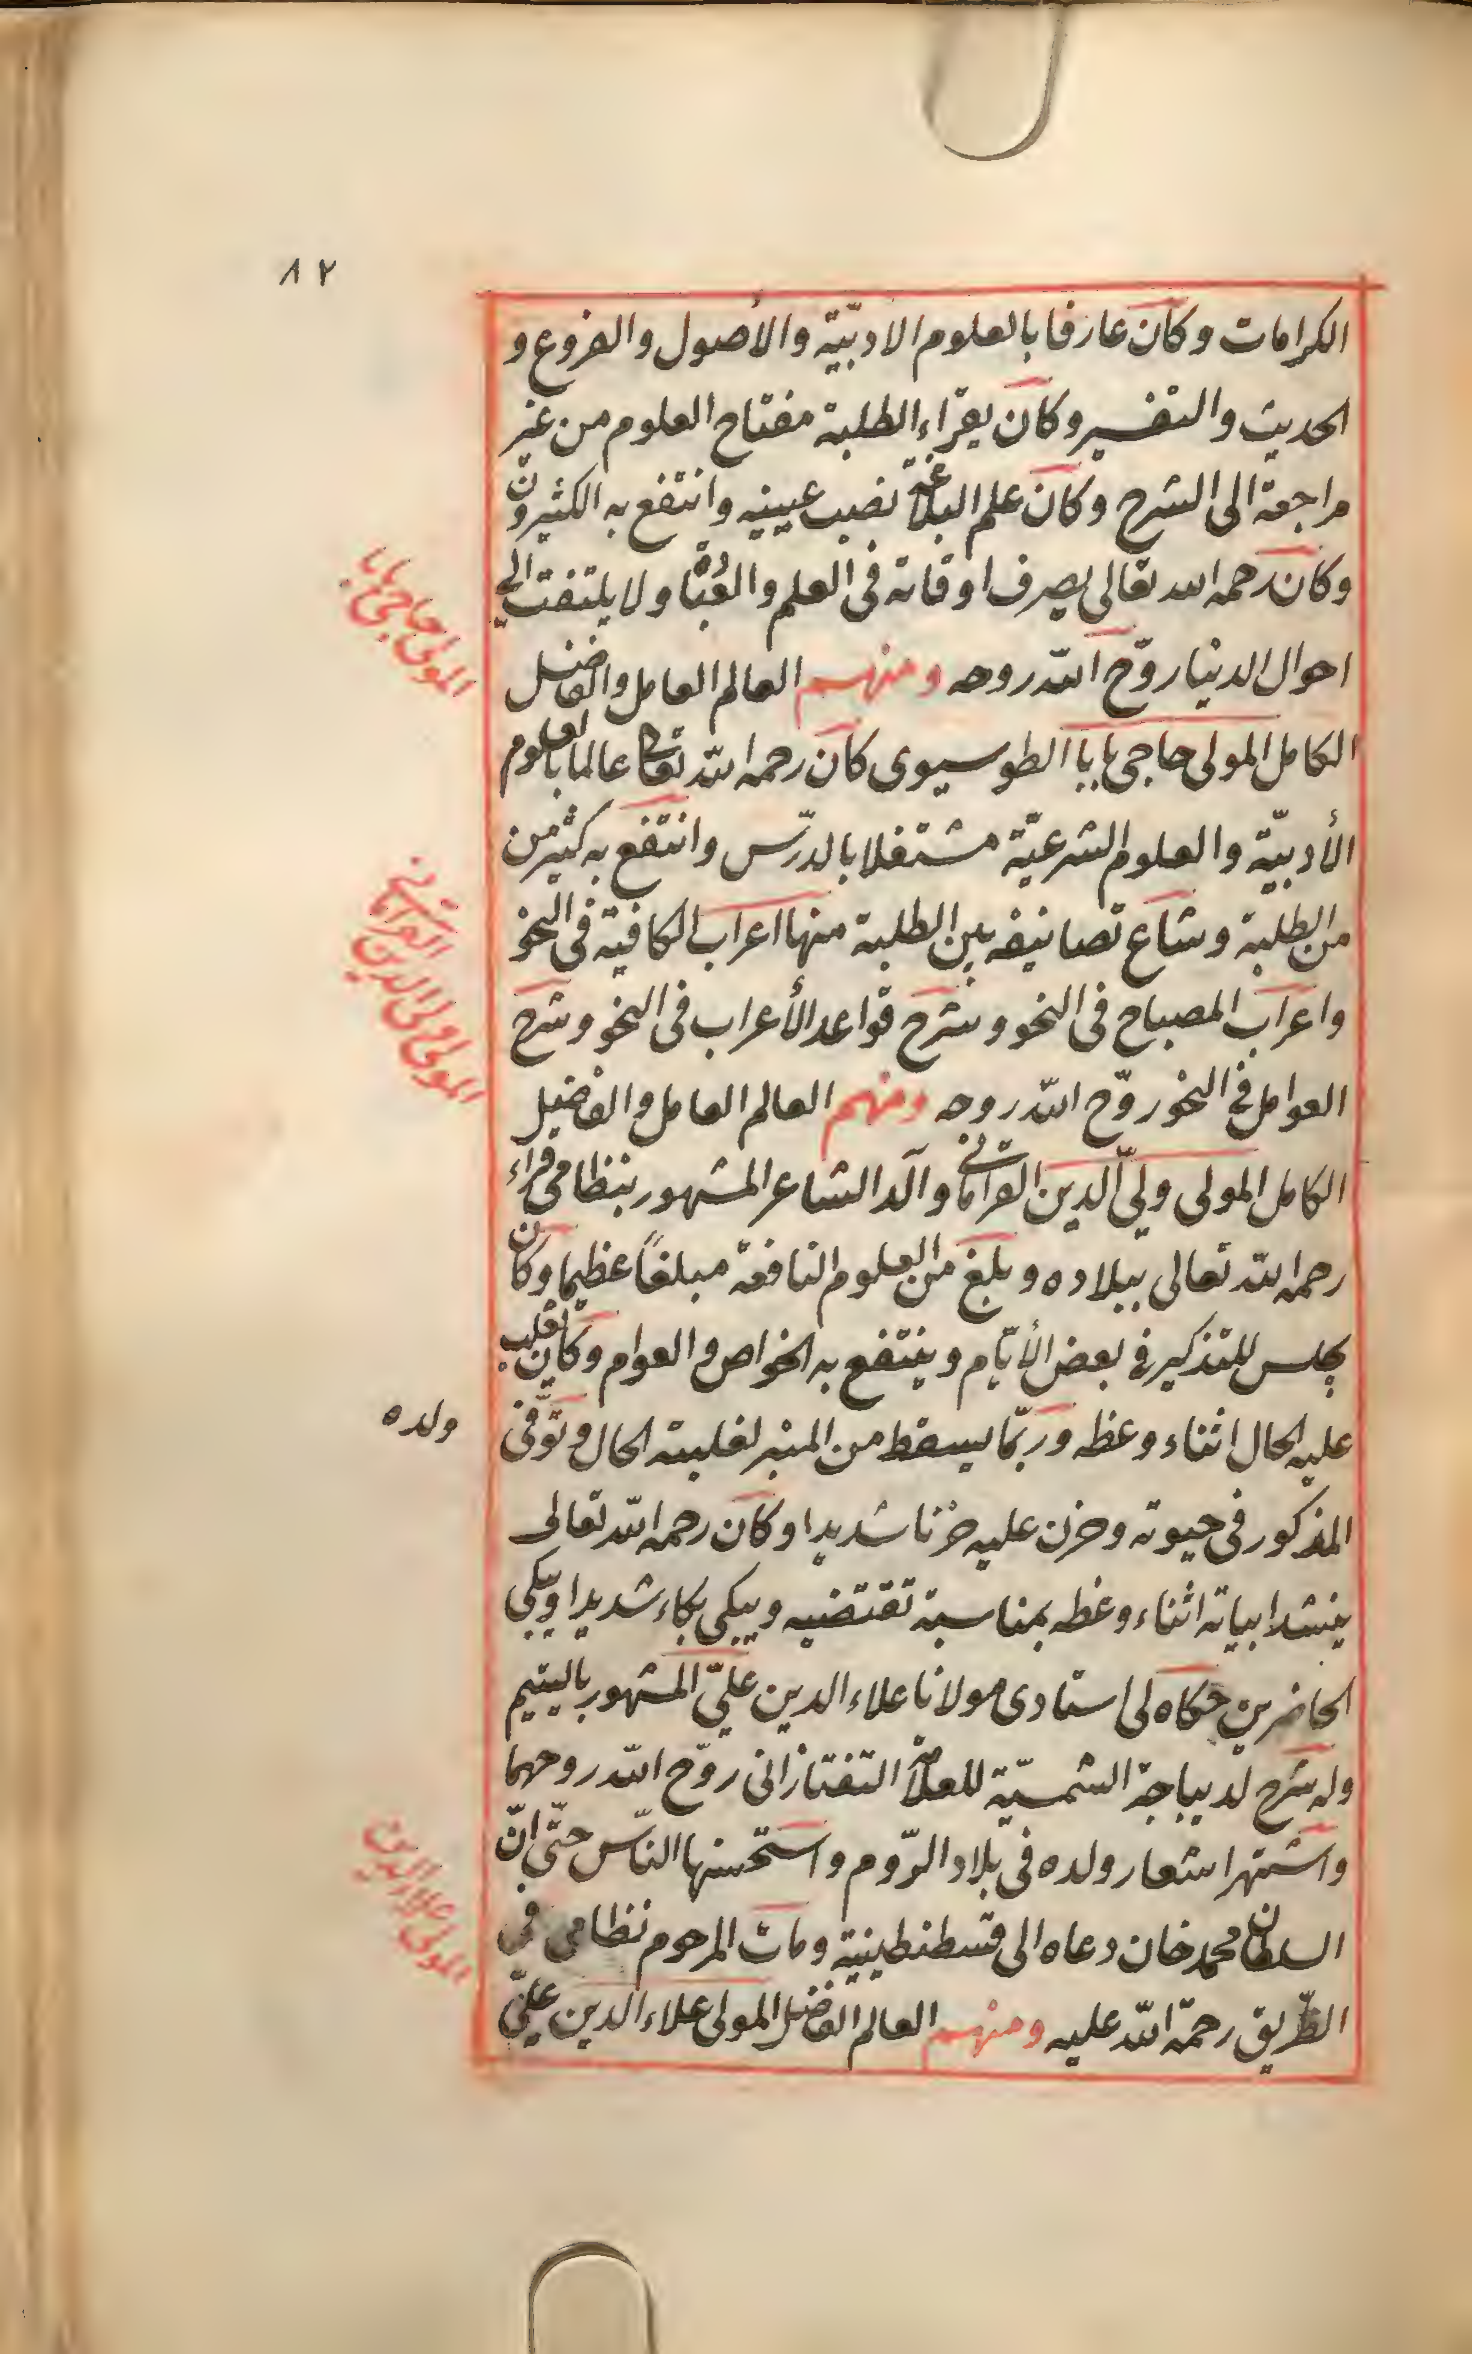 ٨٢
الكرامات وكان عارفا بالعلوم الادبيّة والأصول والفروع و
الحديث والتفسير وكان يقراء الطلبة مفتاح العلوم من غير
مراجعة الى الشرح وكان علم البلاغة نصب عينيه وانتفع به الكثيرون
وكان رحمه الله تعالى يصرف اوقاته فى العلم والعبادة ولا يلتفت الى
احوال الدنيا روّح الله روحه ومنهم العالم العامل والفاضل
الكامل المولى حاجى بابا الطوسيوى كان رحمه الله تعالى عالما بالعلوم
الأدبيّة والعلوم الشرعيّة مشتغلا بالدرّس وانتفع به كثير من
من الطلبة وشاع تصانيفه بين الطلبة منها اعراب الكافية فى النحو
واعراب المصباح فى النحو وشرح قواعد الأعراب فى النحو وشرح
العوامل فى النحو روّح الله روحه ومنهم العالم العامل والفاضل
الكامل المولى ولىّ الدين القرامانى والد الشاعر المشهور بنظامى قراء
رحمه الله تعالى ببلاده وبلغ من العلوم النافعة مبلغاً عظيما وكان
يجلس للتذكير فى بعض الأيّام وينتفع به الخواص والعوام وكان يغلب
عليه الحال اثناء وعظه وربّما يسقط من المنبر لغلبته الحال وتوّفى
ولده
المذكور فى حيوته وحزن عليه حزنا شديدا وكان رحمه الله تعالى
ينشد ابياته اثناء وعظه بمناسبة تقتضيه ويبكى بكاء شديدا ويبكى
الحاضرين حكاه لى استادى مولانا علاء الدين علىّ المشهور باليتيم
وله شرح لديباجة الشمسيّة للعلامة التفتازانى روّح الله روحهما
واشتهر اشعار ولده فى بلاد الرّوم واستحسنها النّاس حتّى انّ
السلطان محمد خان دعاه الى قسطنطينية ومات المرحوم نظامى فى
الطّريق رحمة الله عليه ومنهم العالم الفاضل المولى علاء الدين علىّ
المولى حاجى بابا
المولى ولى الدين القرامانى
المولى علاء الدين